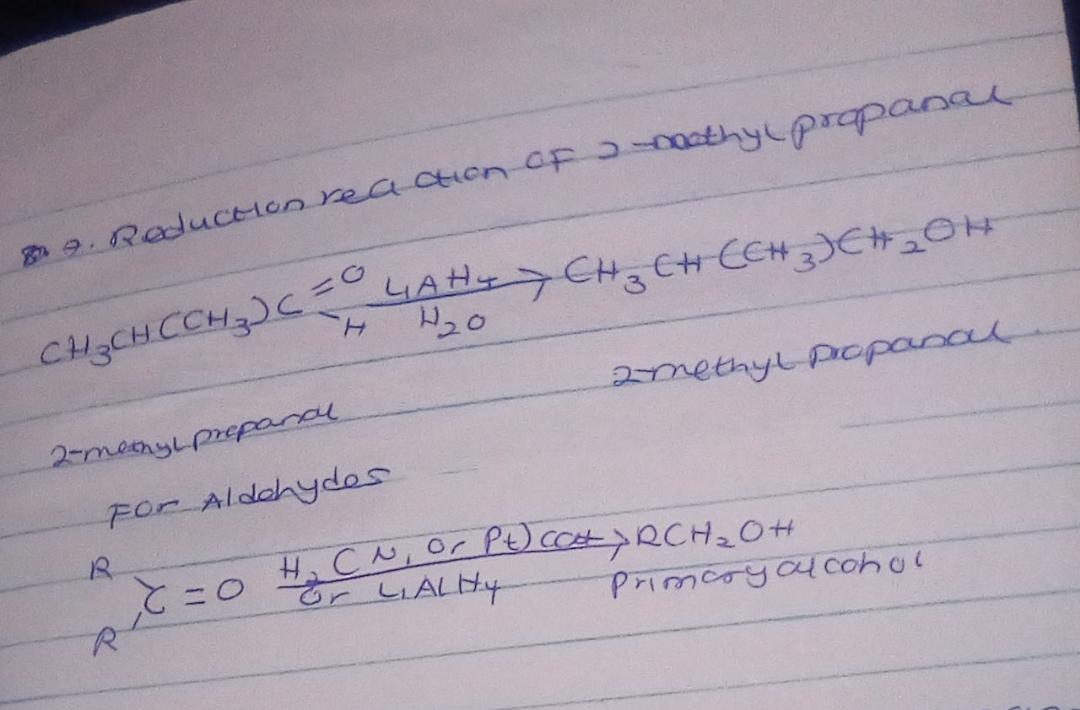 9. Reduction reaction of 2-methyl propanal
CH₃CH(CH₃)C =O \H LiAH₄ / H₂O → CH₃CH(CH₃)CH₂OH
2-methyl propanal
2-methyl propanal
For Aldehydes
R \ R / C=O H₂ (Ni or Pt) cat / or LiAlH₄ → RCH₂OH
Primary alcohol